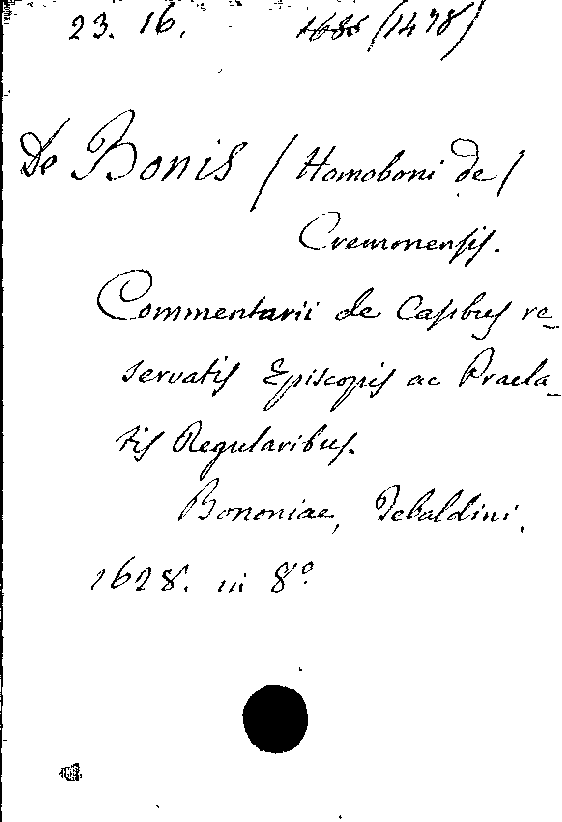 23. 16. 1686 (1478)
De Bonis / Homoboni de /
Cremonensis.
Commentarii de Casibus re-
servatis Episcopis ac Praela-
tis Regularibus.
Bononiae, Tebaldini.
1628. in 8º